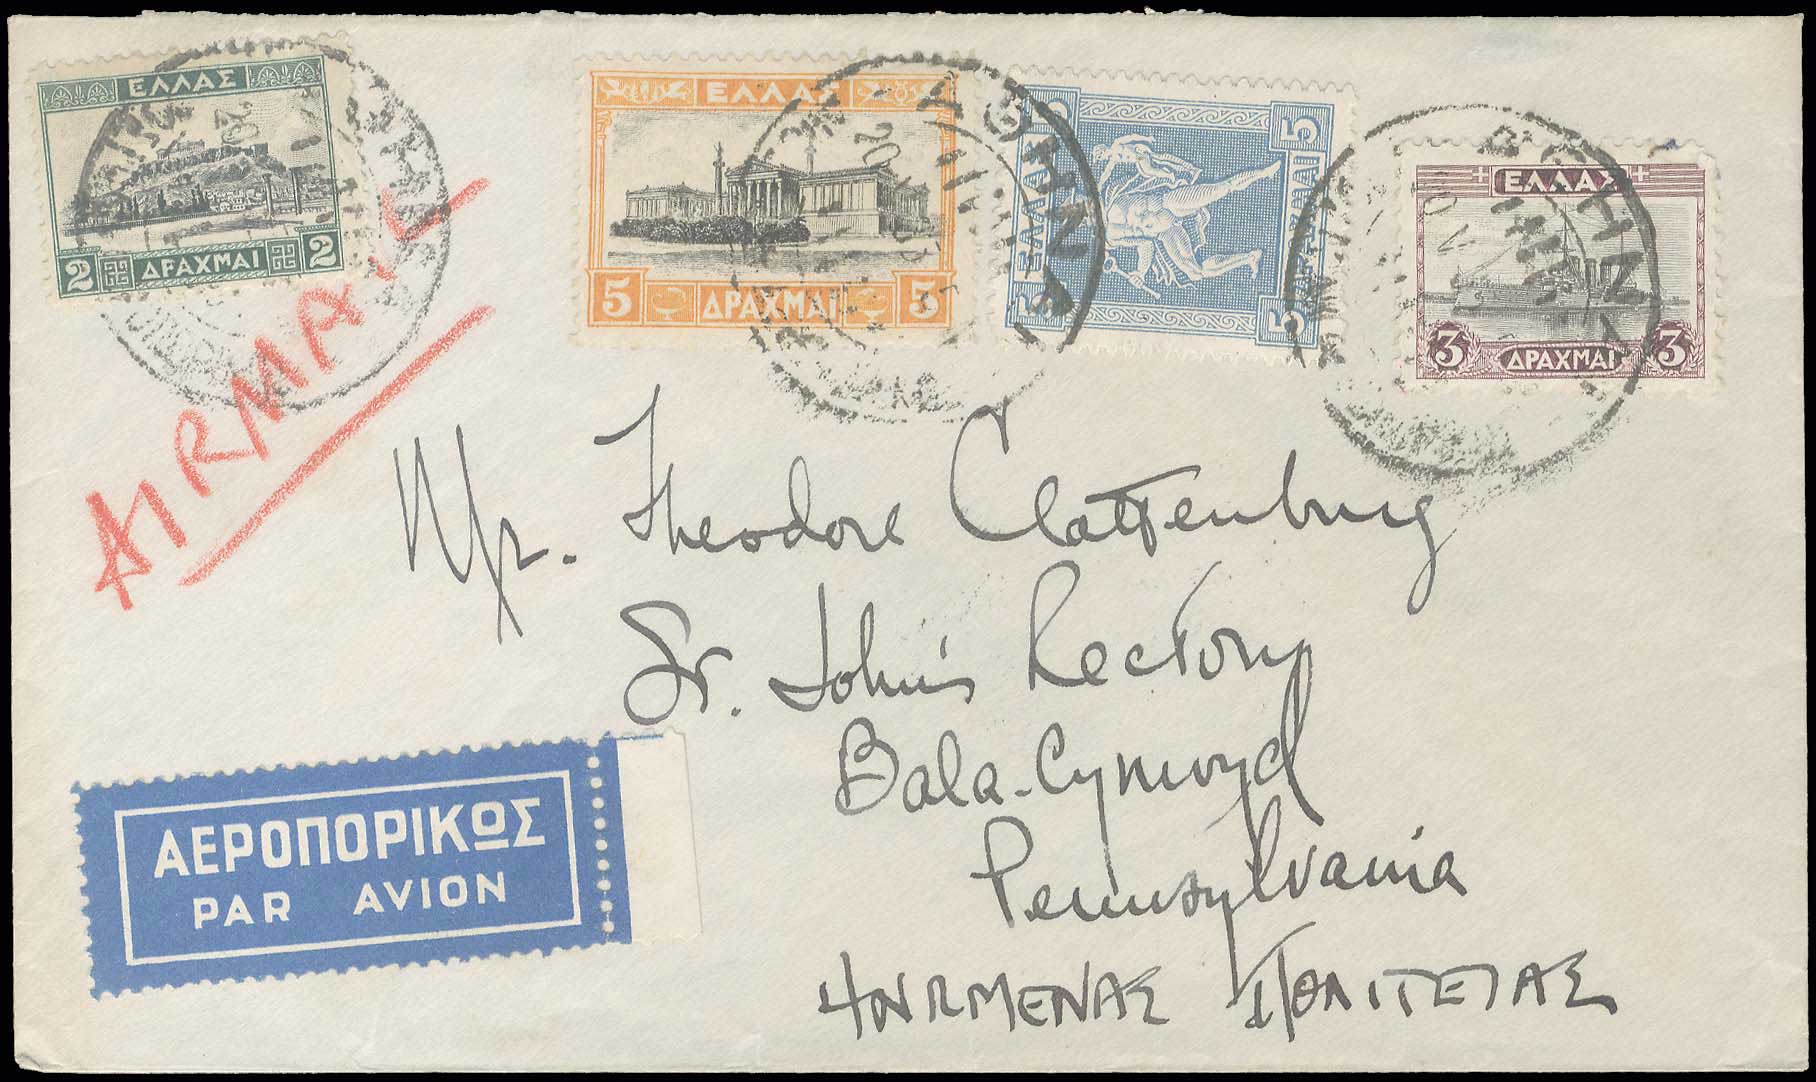 ΕΛΛΑΣ
2 ΔΡΑΧΜΑΙ 2
ΕΛΛΑΣ
5 ΔΡΑΧΜΑΙ 5
5 ΕΛΛΑΣ 5
5 ΔΡΑΧΜΑΙ 5
ΕΛΛΑΣ
3 ΔΡΑΧΜΑΙ 3
ΑΘΗΝΑΙ
20
AIRMAIL
Mr. Theodore Clattenburg
St. John's Rectory
Bala-Cynwyd
Pennsylvania
ΗΝΩΜΕΝΑΣ ΠΟΛΙΤΕΙΑΣ
ΑΕΡΟΠΟΡΙΚΩΣ
PAR AVION